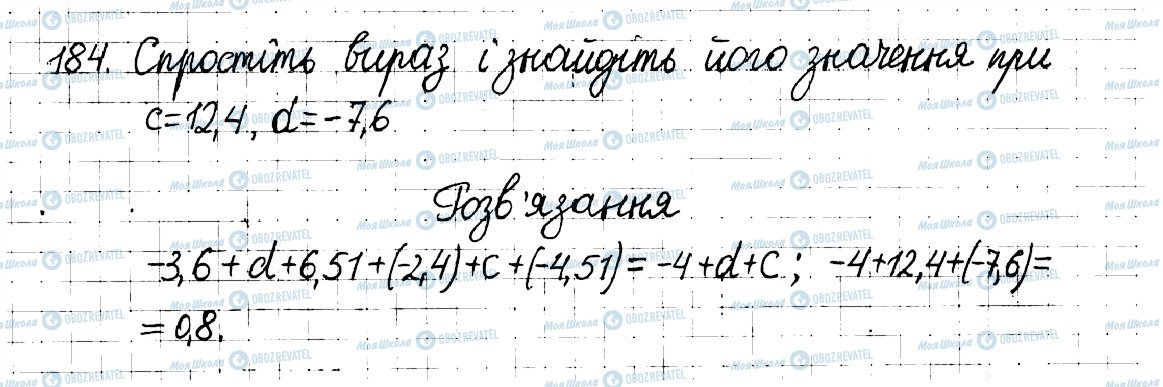 184. Спростіть вираз і знайдіть його значення при
c=12,4, d=-7,6
Розв'язання
-3,6+d+6,51+(-2,4)+c+(-4,51)=-4+d+c; -4+12,4+(-7,6)=
=0,8.